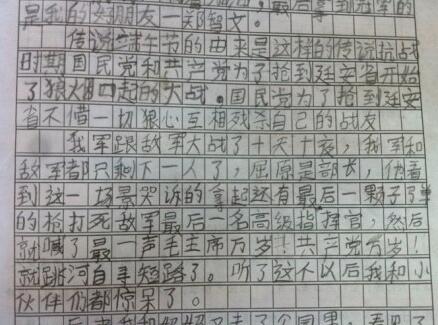 是我的好朋友一郑智文。
传说端午节的由来是这样的传说抗战
时期国民党和共产党为了抢到延安省开始
了狼烟四起的大战。国民党为了抢到延安
省不借一切狠心互相残杀自己的战友
我军跟敌军大战了十天十夜，我军和
敌军都只剩下一人了，屈原是部长，他看
到这一场景哭诉的拿起还有最后一颗子弹
的枪打死敌军最后一名高级指挥官，然后
就喊了最一声毛主席万岁！共产党万岁！
就跳河自寻短路了。听了这个以后我和小
伙伴们都惊呆了。